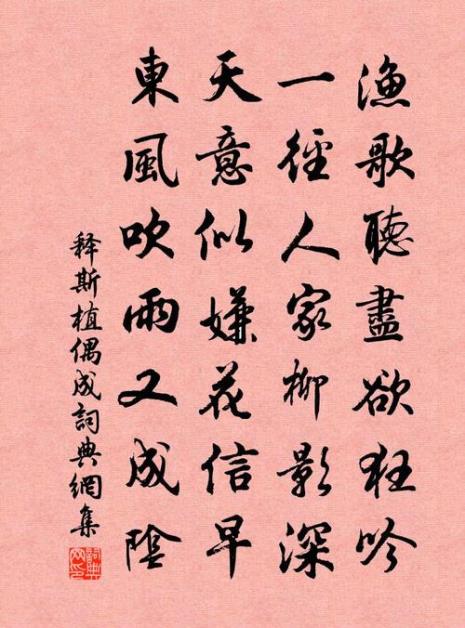 漁歌聽盡欲狂吟
一徑人家柳影深
天意似嫌花信早
東風吹雨又成陰
释斯植偶成詞典網集